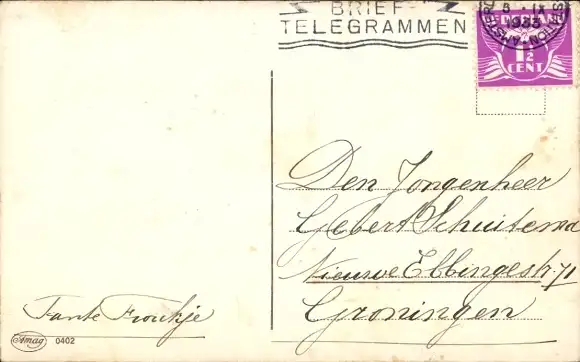 BRIEF-
TELEGRAMMEN
5 · IX
1933
NEDERLAND
1½
CENT
Den Jongenheer
Gebert Schuitema
Nieuwe Ebbingestr. 71
Groningen
Tante Froukje
Amag 0402